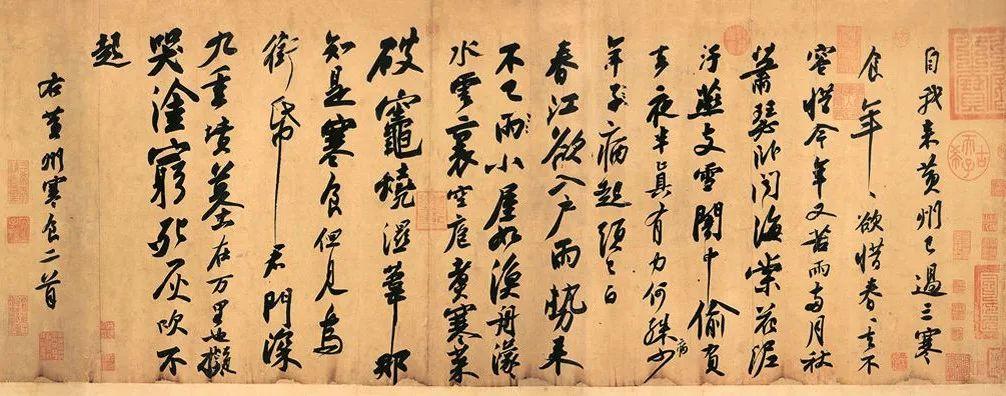 自我來黃州已過三寒
食年〻欲惜春〻去不
容惜今年又苦雨兩月秋
蕭瑟卧聞海棠花泥
汙燕支雪闇中偷負
去夜半真有力何殊少
病
年子病起須已白
春江欲入戶雨勢來
不已雨小屋如漁舟濛〻
水雲裏空庖煮寒菜
破竈燒濕葦那
知是寒食但見烏
銜帋君門深
九重墳墓在万里也擬
哭塗窮死灰吹不
起
右黃州寒食二首
古希天子